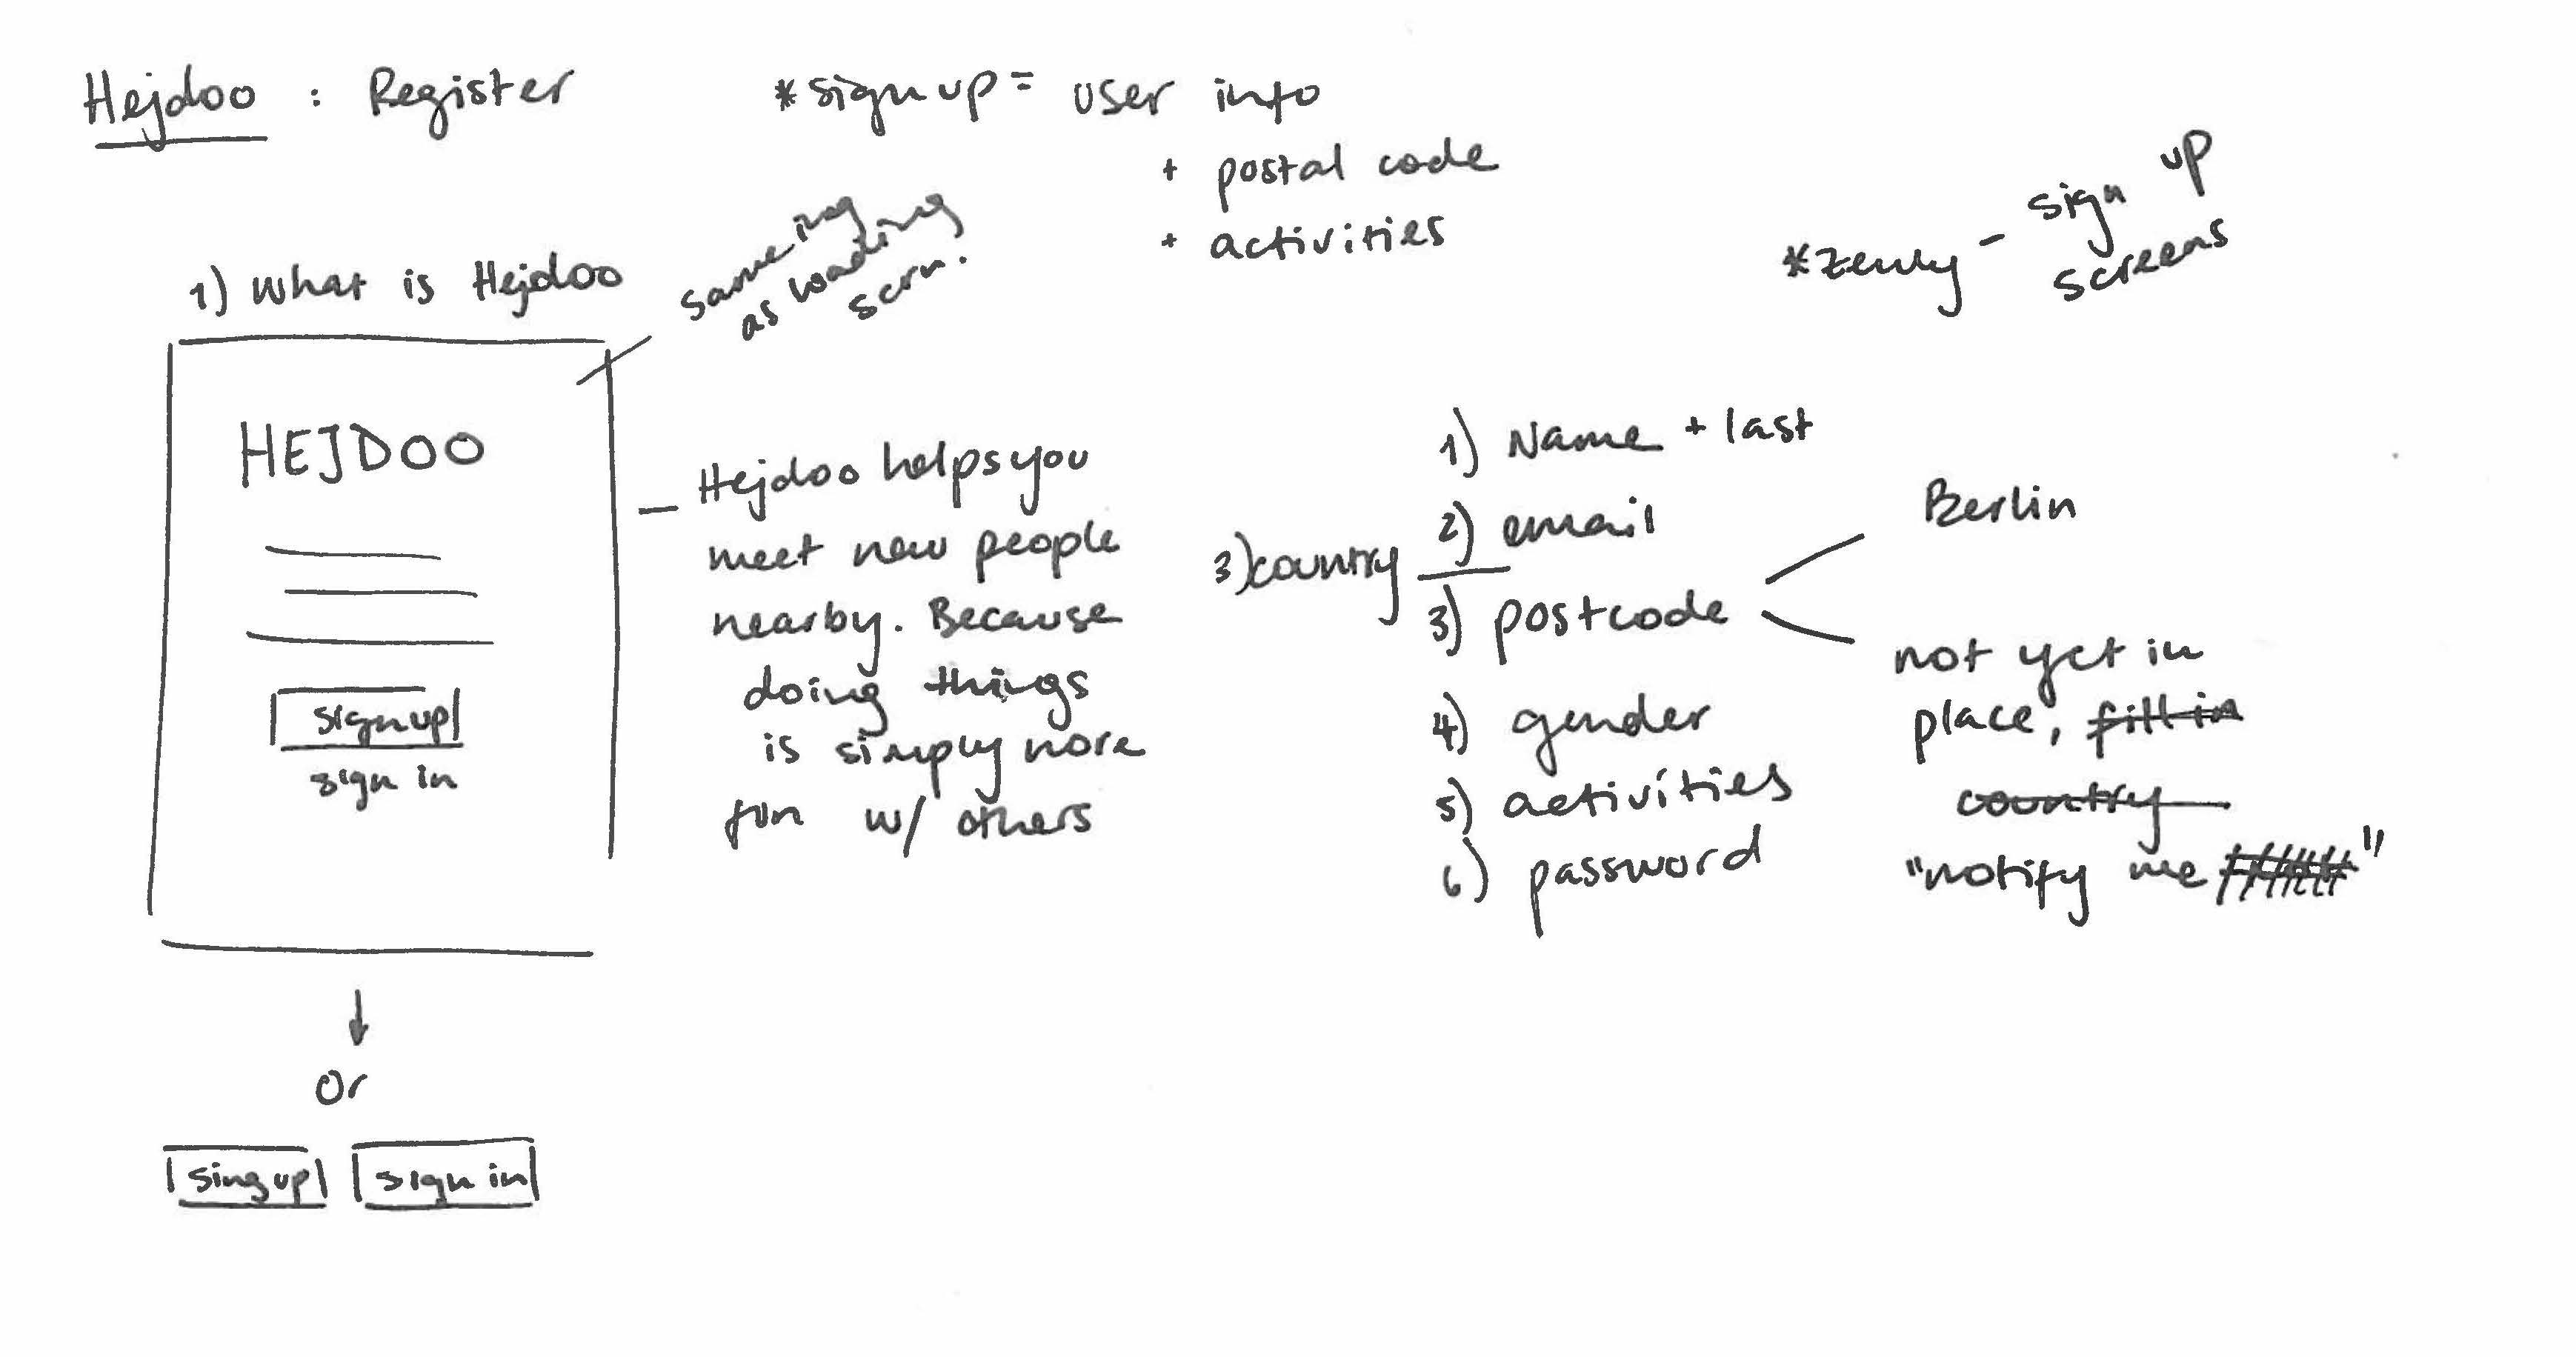 Hejdoo : Register
*sign up = user info
+ postal code
+ activities
*zenly - sign up
screens
1) What is Hejdoo
same img
as loading
scrn.
HEJDOO
sign up
sign in
- Hejdoo helps you
meet new people
nearby. Because
doing things
is simply more
fun w/ others
or
sing up
sign in
1) Name + last
2) email
3) country
3) postcode
4) gender
5) activities
6) password
Berlin
not yet in
place, fill in
country
"notify me "